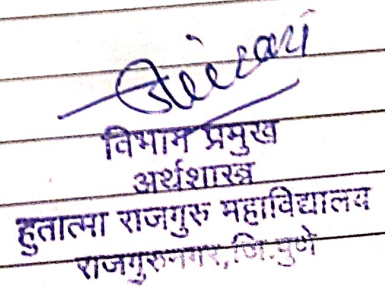 विभाग प्रमुख
अर्थशास्त्र
हुतात्मा राजगुरु महाविद्यालय
राजगुरुनगर, जि. पुणे